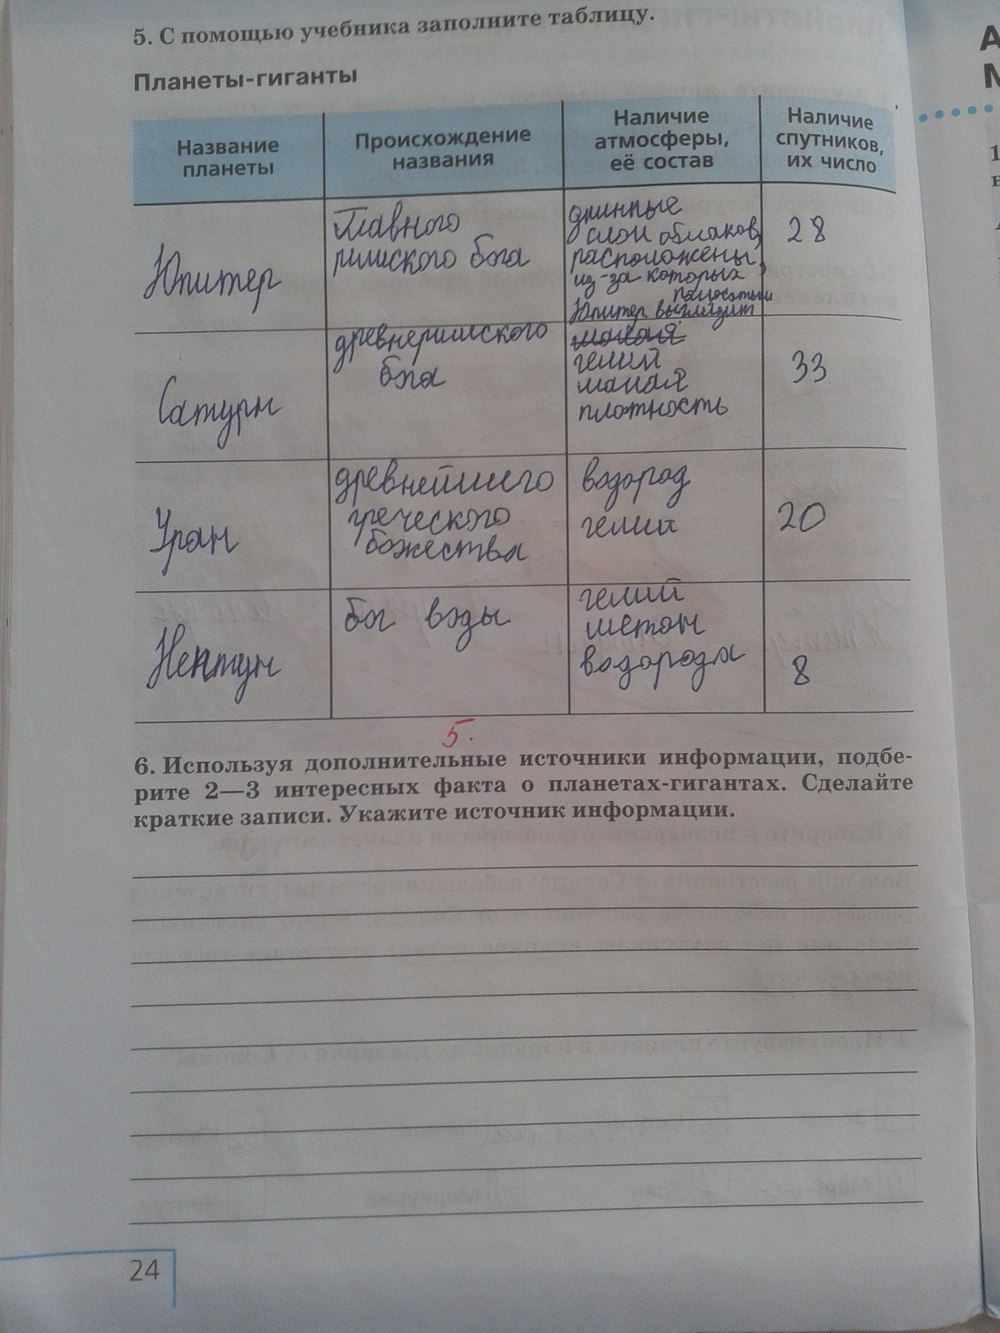 5. С помощью учебника заполните таблицу.
Планеты-гиганты
Название
планеты
Происхождение
названия
Наличие
атмосферы,
её состав
Наличие
спутников,
их число
Юпитер
Главного
римского бога
длинные
слои облаков,
расположены
из-за которых
Юпитер выглядит
полосатым
28
Сатурн
древнеримского
бога
гелий
малая
плотность
33
Уран
древнейшего
греческого
божества
водород
гелий
20
Нептун
бог воды
гелий
метан
водорода
8
5.
6. Используя дополнительные источники информации, подбе-
рите 2—3 интересных факта о планетах-гигантах. Сделайте
краткие записи. Укажите источник информации.
24